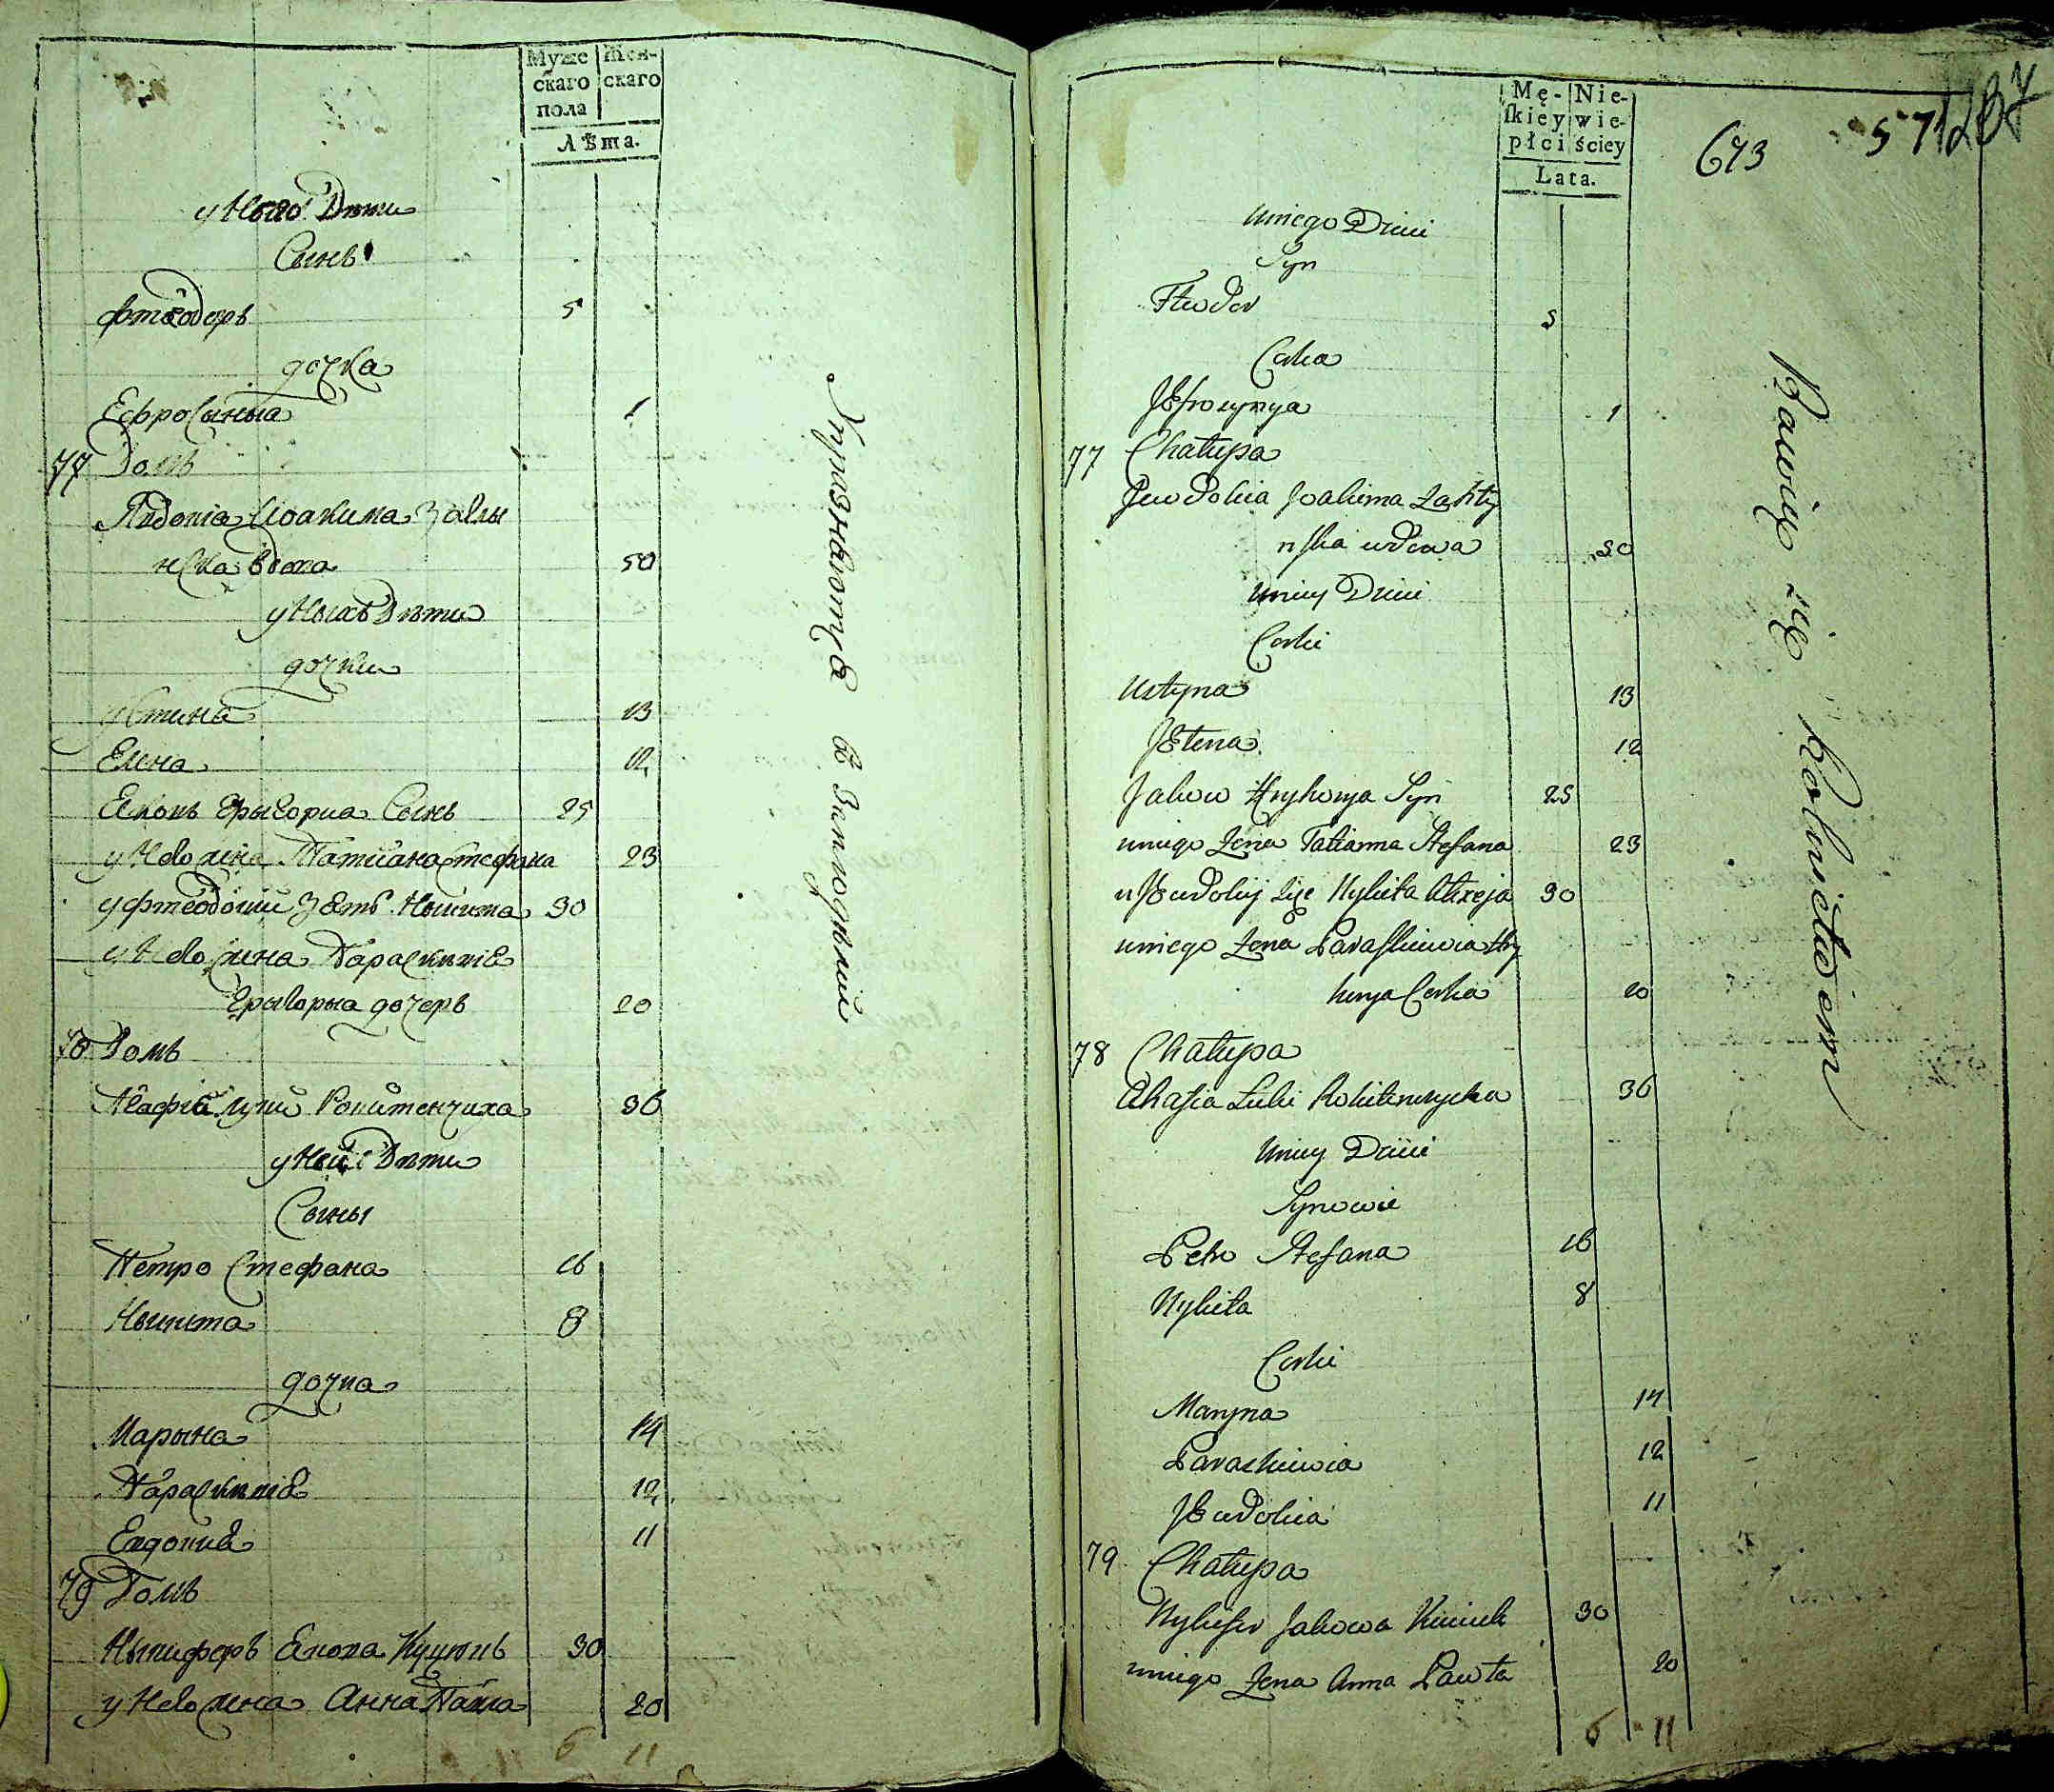 Муже
скаго
пола
Жен-
скаго
Лѣта.
у Него Дѣти
Сынъ
Фтеодоръ 5
дочка
Ефросыныа 1
77 Домъ
Иоакима Залы
нска вдова 50
у Ныхъ Дѣти
дочки
Устина 13
Елена 12
Яковъ Грыгориа Сынъ 25
у Него жена Татиана Стефана 23
у Фтеодокии Зять Никита 30
у Него жена Параскивиа
Грыгорыа дочеръ 20
78 Домъ
Агафиа Луки Рокитенчиха 36
у Ней Дѣти
Сыны
Петро Стефана 16
Никита 8
дочка
Марына 14
Параскивиа 12
Евдокиа 11
79 Домъ
Никифоръ Якова Куцюкъ 30
у Него жена Анна Павла 20
6 11
Упразнвютца в Земледѣлий
Mę-
skiey
płci
Nie-
wie-
ściey
Lata.
673
57
1287
u niego Dzieci
Syn
Fteodor 5
Corka
JEfrozynya 1
77 Chałupa
Jewdokia Joakima Załży
nska wdowa 50
u niey Dzieci
Corki
Ustyna 13
JEłena 12
Jakow Hryhorya Syn 25
u niego Żena Tatianna Stefana 23
u JEwdokij Zięć Nykita Alexeja 30
u niego Żena Paraskiewia Hry
horya Corka 20
78 Chałupa
Ahafia Łuki Rokitenczycha 36
u niey Dzieci
Synowie
Petro Stefana 16
Nykita 8
Corki
Maryna 14
Paraskiewia 12
JEwdokia 11
79 Chałupa
Nykifor Jakowa Kuciuk 30
u niego Żena Anna Pawła 20
6 11
Bawią się Rolnictwem